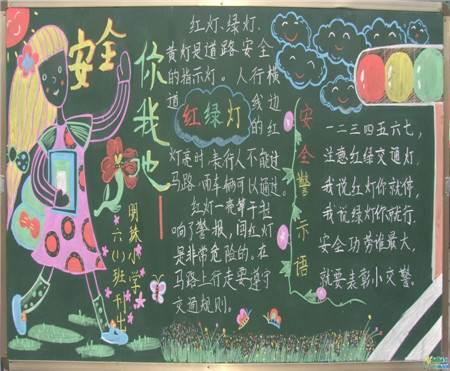 安全
你我他
明珠小学
六(1)班刊
红灯、绿灯、
黄灯是道路安全
的指示灯。人行横
道 线边
的红
红绿灯
灯亮时,表行人不能过
马路,而车辆可以通过。
红灯一亮等于拉
响了警报,闯红灯
是非常危险的,在
马路上行走要遵守
交通规则。
安全警示语
一二三四五六七,
注意红绿交通灯.
我说红灯你就停,
我说绿灯你就行.
安全功劳谁最大,
就要表彰小交警.